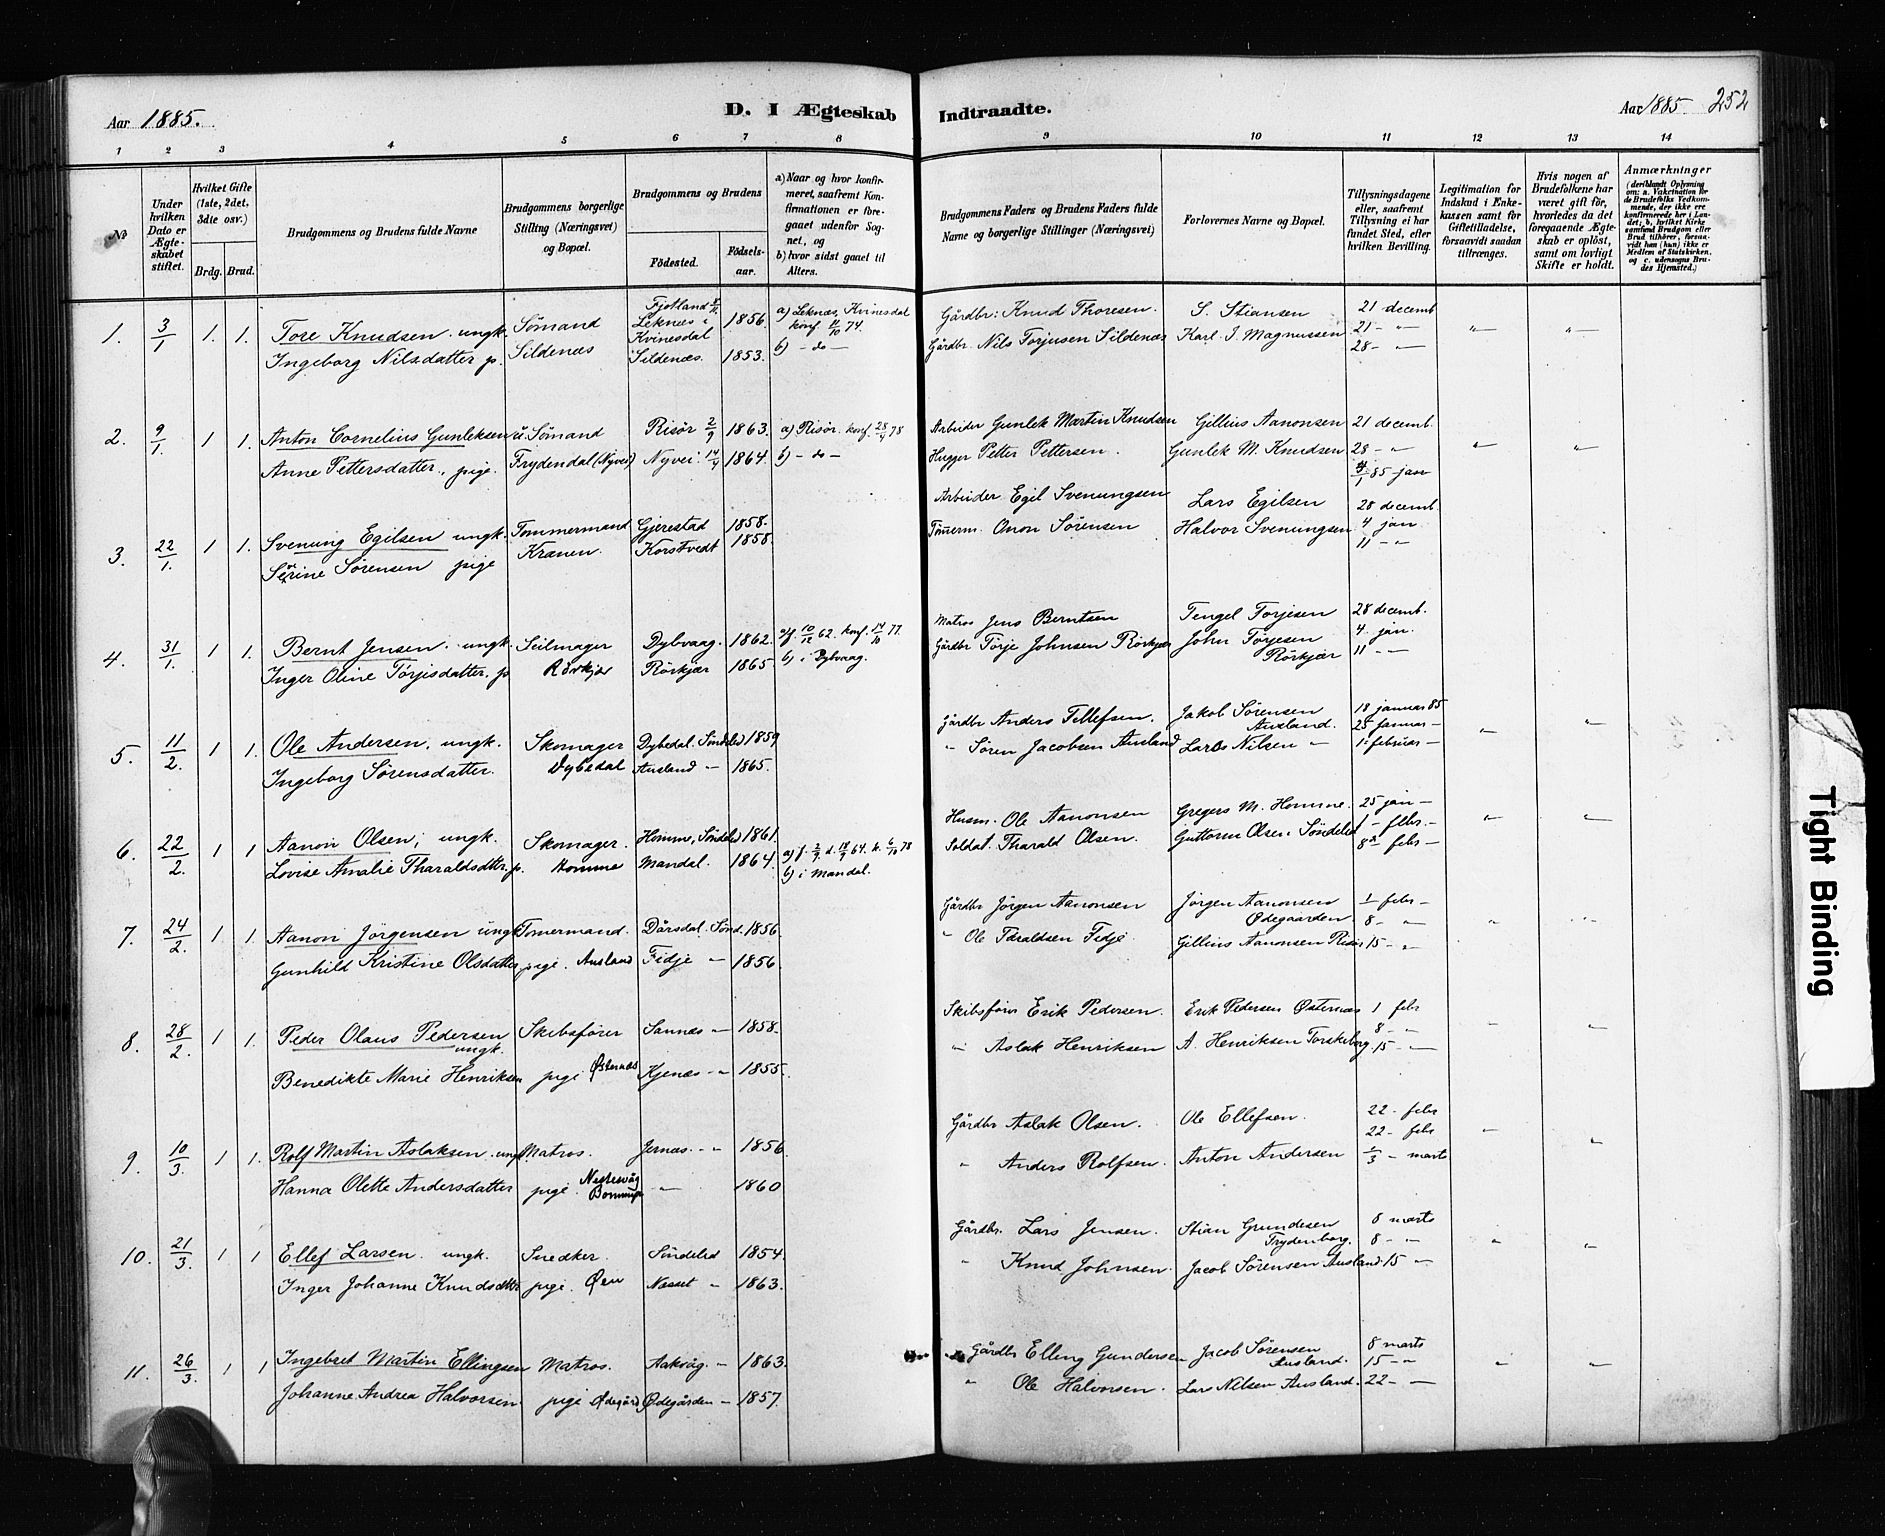 Aar 1885.
D. I Ægteskab Indtraadte.
Aar 1885. 252
1 2 3 4 5 6 7 8 9 10 11 12 13 14
No
Under hvilken Dato er Ægteskabet stiftet.
Hvilket Gifte (1ste, 2det, 3die osv.)
Brdg. Brud.
Brudgommens og Brudens fulde Navne
Brudgommens borgerlige Stilling (Næringsvei) og Bopæl.
Brudgommens og Brudens
Födested.
Födselsaar.
a) Naar og hvor konfirmeret, saafremt Konfirmationen er foregaaet udenfor Sognet, og
b) hvor sidst gaaet til Alters.
Brudgommens Faders og Brudens Faders fulde Navne og borgerlige Stillinger (Næringsvei)
Forlovernes Navne og Bopæl.
Tillysningsdagene eller, saafremt Tillysning ei har fundet Sted, efter hvilken Bevilling.
Legitimation for Indskud i Enkekassen samt for Giftetilladelse, forsaavidt saadan tiltrænges.
Hvis nogen af Brudefolkene har været gift för, hvorledes da det foregaaende Ægteskab er oplöst, samt om lovligt Skifte er holdt.
Anmærkninger
(deriblandt Oplysning om: a. Vakcination for de Brudefolks Vedkommende, der ikke ere konfirmerede her i Landet; b. hvilket Kirkesamfund Brudgom eller Brud tilhörer, forsaavidt han (hun) ikke er Medlem af Statskirken, og c. udensogns Brudes Hjemsted.)
1. 3/1 1. 1. Tore Knudsen ungk. Sømand Fjotland Leknæs i Kvinesdal 1856. a) Leknæs, Kvinesdal konf. 11/10 74. Gårdbr: Knud Thoresen S. Stiansen 21 decemb
Ingeborg Nilsdatter p. Sildenæs Sildenæs. 1853. b) - do - Gårdbr. Nils Torjusen Sildenæs Karl J. Magnussen 21 - " 28 - "
2. 9/1. 1 1. Anton Cornelius Gunleksen u. Sømand Risør 2/9 1863. a) Risør. konf. 28/9 78 Arbeider Gunlek Martin Knudsen Gillius Aanonsen 21 decemb.
Anne Pettersdatter, pige. Frydendal (Nyvei) Nyvei. 14/9 1864. b) - do - Hugger Petter Pettersen. Gunlek M. Knudsen 28 - " 4/1 85 jan
3. 22/1. 1 1. Svenung Egilsen ungk. Tømmermand Gjerestad 1858. Arbeider Egil Svenungsen Lars Egilsen 28 decemb.
Serine Sørensen pige Kranen. Korstvedt 1858. Tømerm. Onon Sørensen Halvor Svenungsen 4 jan 11 - "
4. 31/1. 1 1. Bernt Jensen. ungk. Seilmager Dybvaag. 1862. a) f. 10/12 62. konf. 14/10 77. Matros Jens Berntsen Tengel Torjesen 28 decemb.
Inger Oline Törjisdatter. p Rörkjær Rörkjær 1865 b) i Dybvaag. Gårdbr Törje Johnsen Rörkjær John Törjesen Rörkjær 4. jan. 11 - -
5. 11/2. 1 1. Ole Andersen, ungk. Skomager Dybedal. Söndeled 1859 Gårdbr Anders Tellefsen. Jakob Sørensen Ausland. 18 januar 85
Ingeborg Sørensdatter. Dybedal Ausland - 1865. " Søren Jacobsen Ausland Lars Nilsen " 25 januar - 1. februar -
6. 22/2. 1 1 Aanon Olsen, ungk. Skomager. Homme, Söndeled 1861. Husm. Ole Aanonsen Gregers M. Homme. 25 jan -
Lovise Amalie Tharaldsdtr. p. Homme Mandal. 1864. a) f. 2/9. d. 18/9 64. k. 6/10 78 b) i Mandal. Soldat. Tharald Olsen. Guttorm Olsen Söndeled 1 - febr. - 8 febr -
7. 24/2. 1 1. Aanon Jörgensen ungk. Tømermand. Dårsdal. Sönd. 1856. Gårdbr Jörgen Aanonsen Jörgen Aanonsen Ødegaarden 1 febr - 8 - "
Gunhild Kristine Olsdatter pige. Ausland Fidje " 1856. " Ole Taraldsen Fidje. Gillius Aanonsen Risør 15 - "
8. 28/2. 1 1. Peder Olaus Pedersen ungk. Skibsfører Sannæs - 1858. Skibsfører Erik Pedersen. Erik Pedersen Østernæs 1 febr
Benedikte Marie Henriksen pige Østernæs Kjenæs - 1855. " Aslak Henriksen A. Henriksen Torskeberg 8 - " 15 - "
9. 10/3. 1 1. Rolf Martin Aslaksen. ungk. Matros. Jernæs. - " 1856. Gårdbr Aslak Olsen. Ole Ellefsen. 22 - febr 22 - febr
Hanna Olette Andersdatter pige. - " - 1860 " Anders Rolfsen. Anton Andersen 1/3 - marts
10. 21/3. 1 1 Ellef Larsen. ungk. Snedker. Söndeled 1854. Gårdbr. Lars Jensen. Stian Grundesen Frydenborg. 8 marts 8 - "
Inger Johanne Knudsdtr pige. Øen Næset - 1863. " Knud Johnsen. Jacob Sørensen Ausland 15 - "
11. 26/3. 1 1 Ingebret Martin Ellingsen Matros. Aakvåg. - 1863. Gårdbr Elling Gundersen Jacob Sørensen Ausland. 8 marts 15 - "
Johanne Andrea Halvorsen. pige Ødegård Ødegården - 1857. " Ole Halvorsen. Lars Nilsen Ausland. 22 - -
Tight Binding